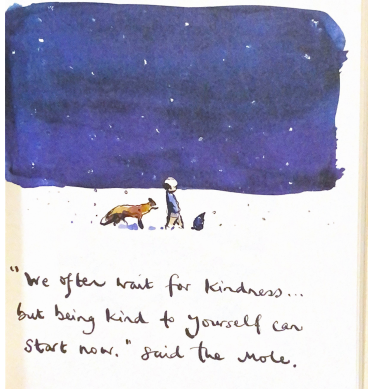 "We often wait for kindness...
but being kind to yourself can
start now." said the Mole.